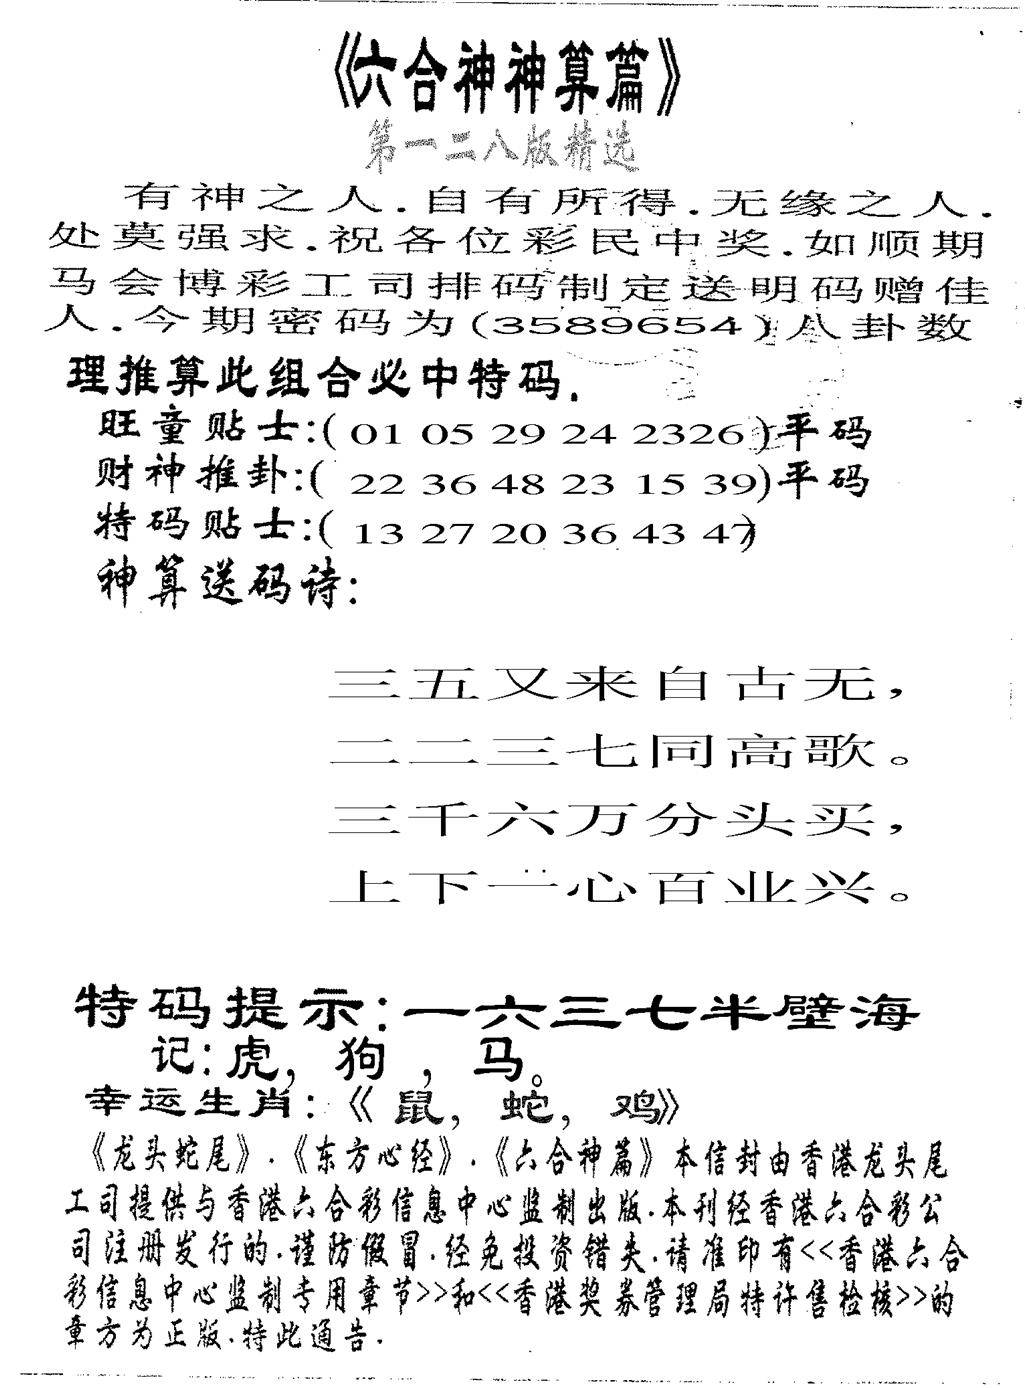 《六合神神算篇》
第一二八版精选
有神之人.自有所得.无缘之人.
处莫强求.祝各位彩民中奖.如顺期
马会博彩工司排码制定送明码赠佳
人.今期密码为(3589654)八卦数
理推算此组合必中特码.
旺童贴士:( 01 05 29 24 2326 )平码
财神推卦:( 22 36 48 23 15 39)平码
特码贴士:( 13 27 20 36 43 47)
神算送码诗:
三五又来自古无,
二二三七同高歌。
三千六万分头买,
上下一心百业兴。
特码提示:一六三七半壁海
记:虎,狗,马。
幸运生肖:《鼠,蛇,鸡》
《龙头蛇尾》.《东方心经》.《六合神篇》本信封由香港龙头尾
工司提供与香港六合彩信息中心监制出版.本刊经香港六合彩公
司注册发行的.谨防假冒.经免投资错失.请准印有<<香港六合
彩信息中心监制专用章节>>和<<香港奖券管理局特许售检核>>的
章方为正版.特此通告.